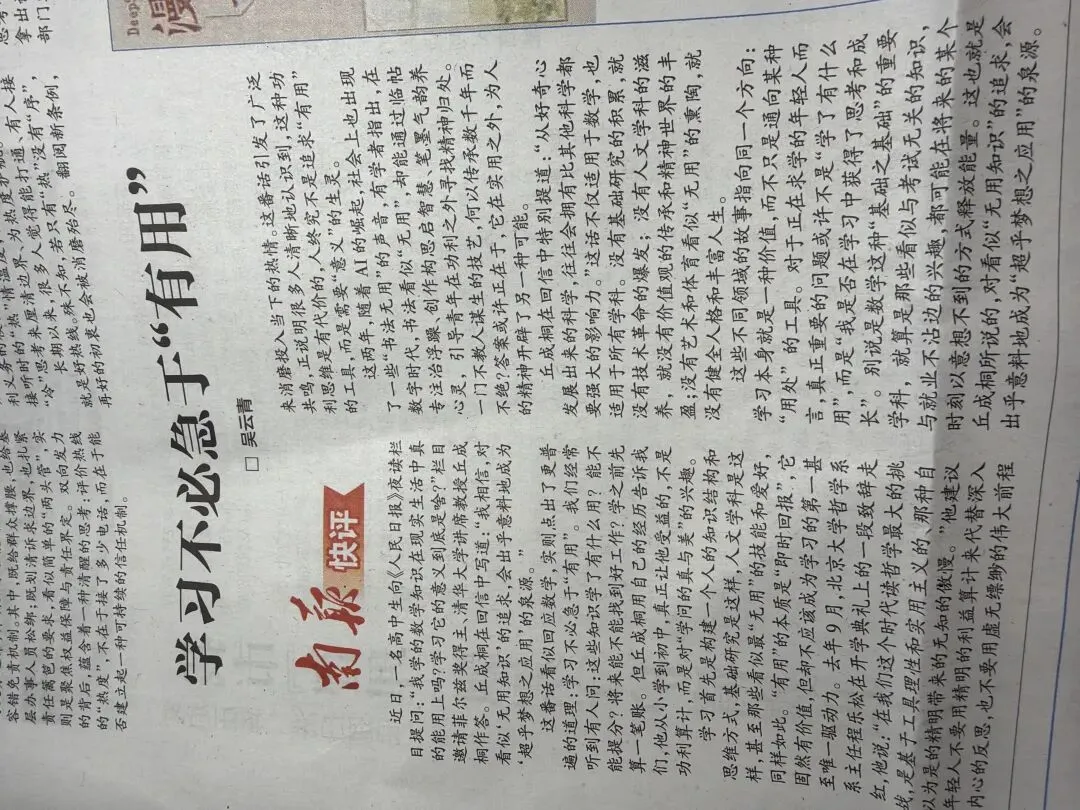 层办事人员松绑；既划清诉求边界，也扎紧
责任篱笆的要求，看似简单的“两头管”，实
则是聚焦权益保障与责任界定。双向发力
的背后，蕴含着一种清醒的思考：评价热线
的“热度”，不在于接了多少电话，而在于能
否建立起一种可持续的信任机制。
“冷”思考来厘清边界、为热度护航。
长期以来，很多人觉得能打通、有人接
就是好热线。殊不知，若只有“热”没有“序”，
再好的初衷也会被消磨殆尽。
翻阅新条例，
学习不必急于“有用”
□ 吴云青
南苏
快评
近日，一名高中生向《人民日报》夜读栏
目提问：“我学的数学知识在现实生活中真
的能用上吗？学习它的意义到底是啥？”栏目
邀请菲尔兹奖得主、清华大学讲席教授丘成
桐作答。丘成桐在回信中写道：“我相信，对
看似‘无用知识’的追求，会出乎意料地成为
‘超乎梦想之应用’的泉源。”
这番话看似回应数学，实则点出了更普
遍的道理：学习不必急于“有用”。我们经常
听到有人问：这些知识学了有什么用？能不
能提分？将来能不能找到好工作？学之前先
算一笔账。但丘成桐用自己的经历告诉我
们，他从小学到初中，真正让他受益的，不是
功利算计，而是对“学问的真与美”的兴趣。
学习首先是构建一个人的知识结构和
思维方式，基础研究是这样，人文学科是这
样，甚至那些看似最“无用”的技能和爱好，
同样如此。“有用”的本质是“即时回报”，它
固然有价值，但却不应该成为学习的第一甚
至唯一驱动力。去年9月，北京大学哲学系
系主任程乐松在开学典礼上的一段致辞走
红，他说：“在我们这个时代读哲学最大的挑
战，是基于工具理性和实用主义的、那种自
以为是的精明带来的无知的傲慢。”他建议
年轻人不要用精明的利益算计来代替深入
内心的反思，也不要用虚无缥缈的伟大前程
来消磨投入当下的热情。这番话引发了广泛
共鸣，正说明很多人清晰地认识到，这种功
利思维是有代价的，人终究不是追求“有用”
的工具，而是需要“意义”的生灵。
这两年，随着AI的崛起，社会上也出现
了一些“书法无用”的声音，有学者指出，在
数字时代，书法看似“无用”，却能通过临帖
专注治浮躁、创作构思启智慧、笔墨气韵养
心灵，引导青年在功利之外寻找精神归处。
一门不教人谋生的技艺，何以传承数千年而
不绝？答案或许正在于，它在实用之外，为人
的精神开辟了另一种可能。
丘成桐在回信中特别提道：“从好奇心
发展出来的科学，往往会拥有比其他科学都
要强大的影响力。”这话不仅适用于数学，也
适用于所有学科。没有基础研究的积累，就
没有技术革命的爆发；没有人文学科的滋
养，就没有价值观的传承和精神世界的丰
盈；没有艺术和体育看似“无用”的熏陶，就
没有健全人格和丰富人生。
这些不同领域的故事指向同一个方向：
学习本身就是一种价值，而不只是通向某种
“用处”的工具。对于正在求学的年轻人而
言，真正重要的问题或许不是“学了有什么
用”，而是“我是否在学习中获得了思考和成
长”。别说是数学这种“基础之基础”的重要
学科，就算是那些看似与考试无关的知识，
与就业不沾边的兴趣，都可能在将来的某个
时刻以意想不到的方式释放能量。这也就是
丘成桐所说的，对看似“无用知识”的追求，会
出乎意料地成为“超乎梦想之应用”的泉源。